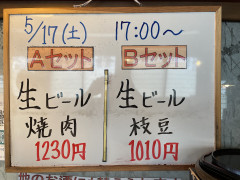 5/17(土) 17:00～
Aセット
生ビール
焼肉
1230円
Bセット
生ビール
枝豆
1010円